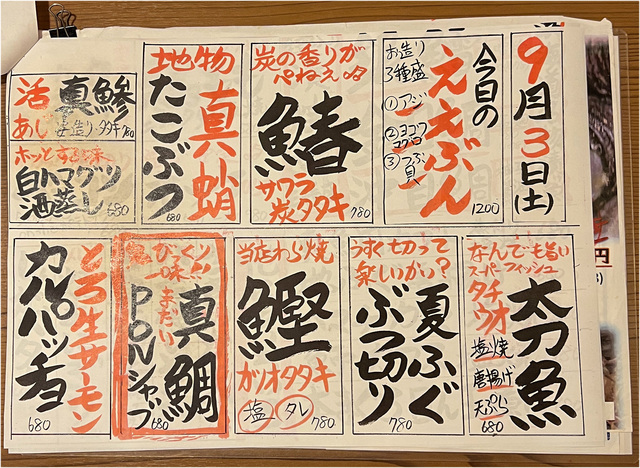 9月3日(土)
今日の
ええぶん
お造り
3種盛
①アジ
②ヨコワ
マグロ
③つぶ
貝
1200
炭の香りが
ぺねえッタ
鰆
サワラ
炭タタキ
780
地物
真蛸
たこぶつ
680
活
あじ
真鯵
お造り・タタキ
780
ホッとする味
白ハマグリ
酒蒸し
680
なんでも旨い
スーパーフィッシュ
タチ
ウオ
太刀魚
塩焼
唐揚げ
天ぷら
680
うすく切って
楽しいかい?
夏ふぐ
ぶつ切り
780
当店わら焼
鰹
カツオタタキ
塩 タレ
780
びっくり
一味!!
まだい
真鯛
PONシャブ
680
とろ生サーモン
カルパッチョ
680